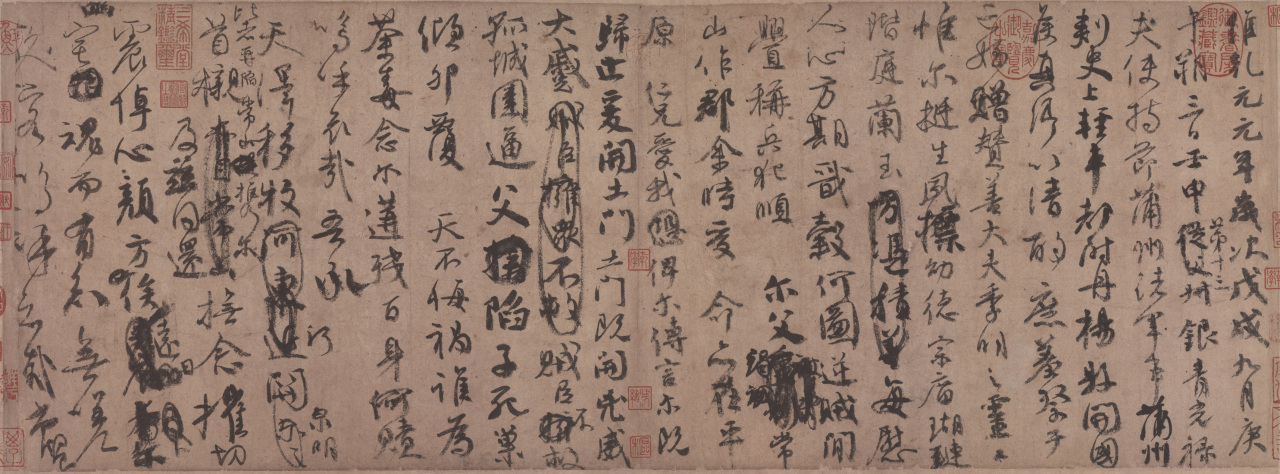 維乾元元年歲次戊戌九月庚
午朔三日壬申第十三叔銀青光祿
夫使持節蒲州諸軍事蒲州
刺史上輕車都尉丹楊縣開國
侯真卿以清酌庶羞祭于
亡姪贈贊善大夫季明之靈曰
惟爾挺生夙標幼德宗廟瑚璉
階庭蘭玉方憑積善每慰
人心方期戩穀何圖逆賊間
釁稱兵犯順爾父竭誠常
山作郡余時受命亦在平
原仁兄愛我俾爾傳言爾既
歸止爰開土門土門既開凶威
大蹙賊臣擁眾不救賊臣不救
孤城圍逼父陷子死巢
傾卵覆天不悔禍誰為
荼毒念爾遘殘百身何贖
嗚乎哀哉吾承
天澤移牧河關泉明
比者再陷常山攜爾
首櫬及茲同還撫念摧切
震悼心顏方俟遠日
爾幽宅魂而有知無嗟久
客嗚呼哀哉尚饗